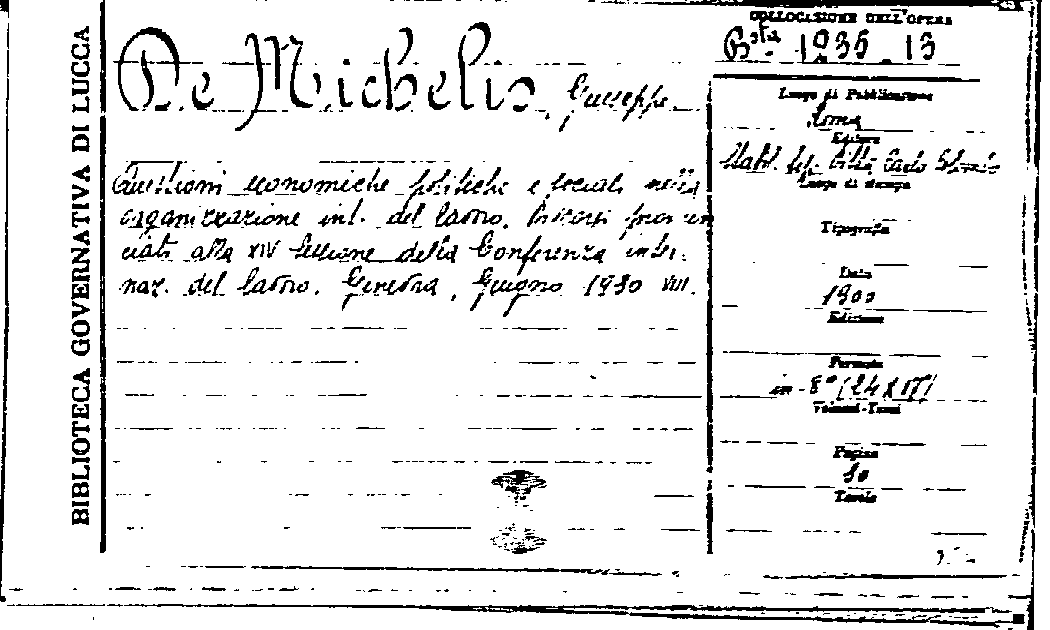 BIBLIOTECA GOVERNATIVA DI LUCCA
De Michelis, Giuseppe
Questioni economiche politiche e sociali nella
organizzazione int. del lavoro. Discorsi pronun
ciati alla XIV Sessione della Conferenza inter.
naz. del lavoro. Ginevra, Giugno 1930 VIII.
COLLOCAZIONE DELL'OPERA
Bsta. 1935 - 13
Luogo di Pubblicazione
Roma
Editore
Stabil. Tip. Ditta Carlo Colombo
Luogo di stampa
Tipografia
Data
1900
Edizione
Formato
in - 8° (24 X 17)
Volumi-Tomi
Pagine
Tavole